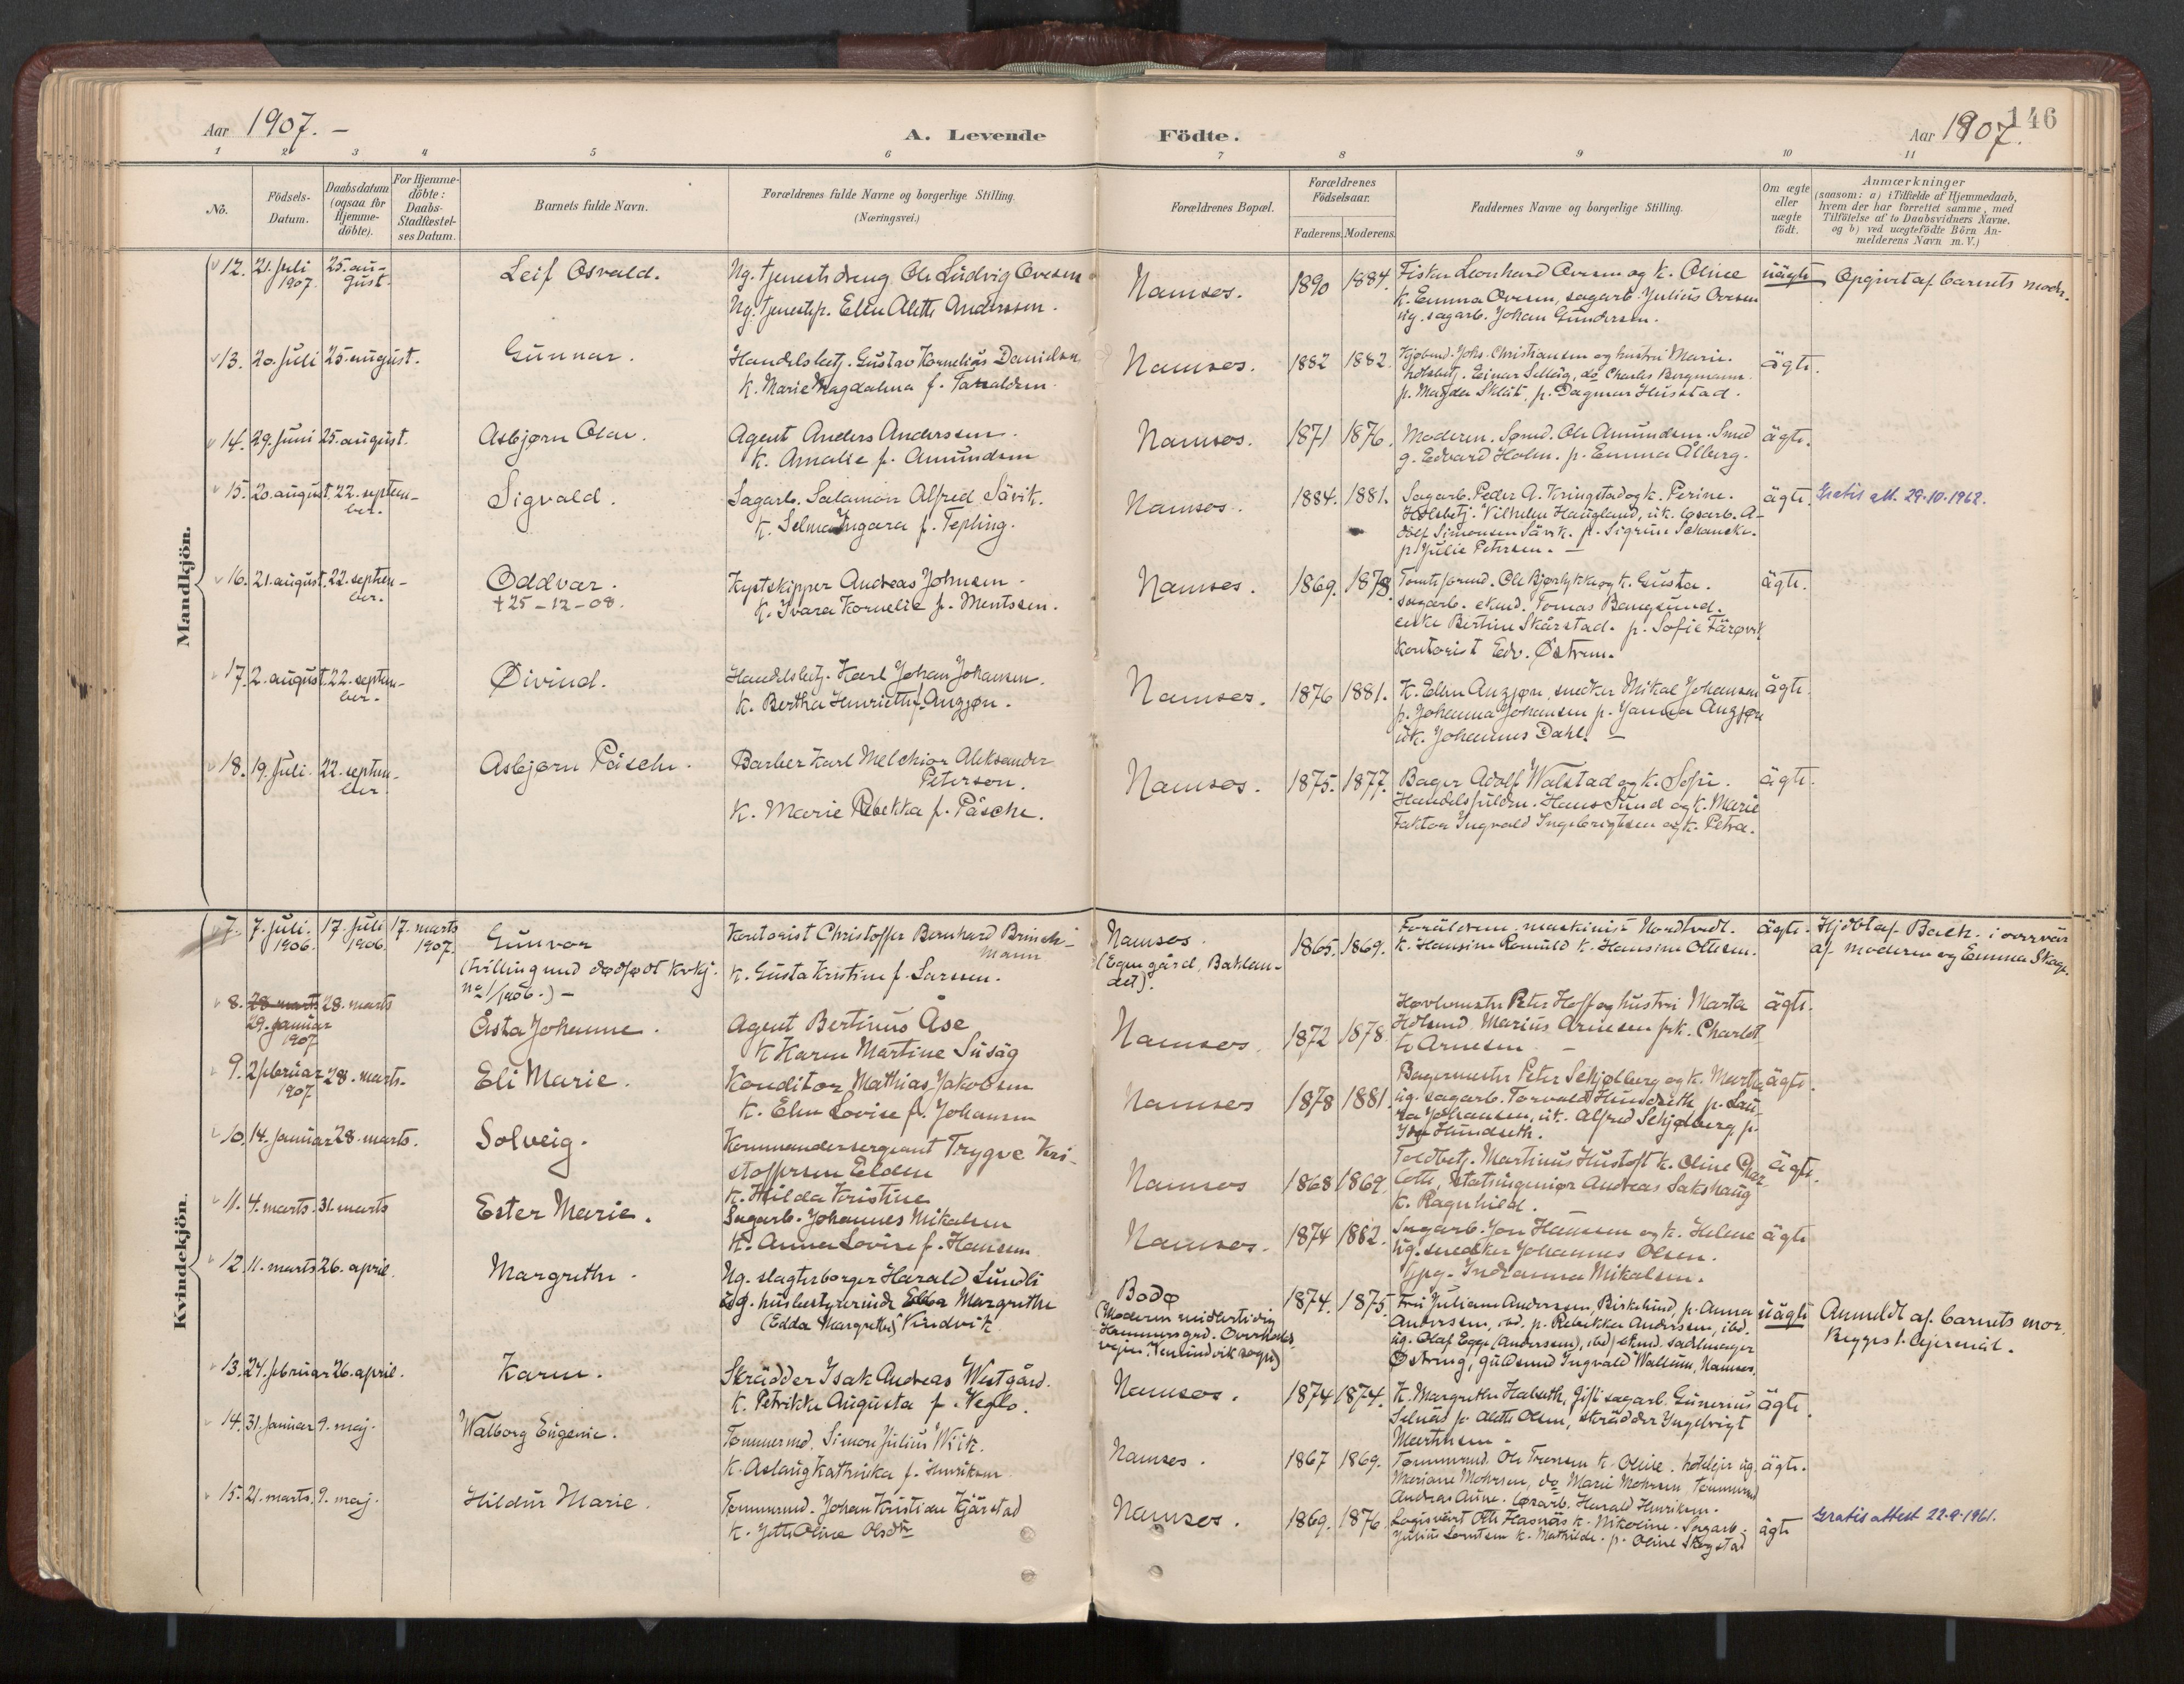 Aar 1907. –
A. Levende
Födte.
Aar 1907.
146
1 2 3 4 5 6 7 8 9 10 11
No.
Födsels-
Datum.
Daabsdatum
(ogsaa for
Hjemme-
döbte).
For Hjemme-
döbte:
Daabs-
Stadfæstel-
ses Datum.
Barnets fulde Navn.
Forældrenes fulde Navne og borgerlige Stilling.
(Næringsvei.)
Forældrenes Bopæl.
Forældrenes
Födselsaar.
Faderens. Moderens.
Faddernes Navne og borgerlige Stilling.
Om ægte
eller
uægte
födt.
Anmærkninger
(saasom: a) i Tilfælde af Hjemmedaab,
hvem der har forrettet samme, med
Tilföielse af to Daabsvidners Navne.
og b) ved uægtefödte Börn An-
melderens Navn m. V.)
Mandkjön.
12. 21. Juli
1907.
25. au-
gust.
Leif Osvald.
Ug. tjenestedreng Ole Ludvig Ovesen
Ug. tjenestep. Elen Alette Anderssen.
Namsos.
1890 1884.
Fisker Leonhard Ovesen og k. Oline
k. Emma Ovesen, sagarb. Julius Ovesen
ug. sagarb. Johan Gundersen.
uägte
Opgivet af barnets moder.
13. 20. Juli 25. august.
Gunnar.
Handelsbetj. Gustav Kornelius Danielsen
k. Marie Magdalena f. Taraldsen.
Namsos.
1882 1882.
Kjøbmd. Johs. Christiansen og hustru Marie.
hdlsbetj. Einar Selläg, do Charles Bergmann
p. Magda Sklät, p. Dagmar Husstad.
ägte.
14. 29. Juni 25. august.
Asbjørn Olav.
Agent Anders Anderssen.
k. Amalie f. Amundsen
Namsos.
1871 1876.
Moderen. Sømd. Ole Amundsen. Smed
g. Edvard Holm. p. Emma Ålberg.
ägte.
15. 20. august. 22. septem-
ber.
Sigvald.
Sagarb. Salamon Alfred Sävik.
k. Selma Ingara f. Tepling.
Namsos.
1884. 1881.
Sagarb. Peder A. Kringstad og k. Perine.
Hdlsbetj. Vilhelm Haugland, uk. løsarb. A-
dolf Simonsen Sävik. p. Sigrun Schancke.
p. Julie Petersen. –
ägte.
Gratis att. 29.10.1962.
16. 21. august. 22. septem-
ber.
Oddvar.
† 25–12–08.
Kystskipper Andreas Johnsen.
k. Ivara Kornelie f. Mentssen.
Namsos.
1869. 1878.
Tomteformd. Ole Bjørlykke og k. Gusta.
sagarb. ekmd. Tomas Bangsund.
enke Bertine Skårstad. p. Sofie Färøvik
Kontorist Edv. Østrem.
ägte.
17. 2. august. 22. septem-
ber.
Øivind.
Handelsbetj. Karl Johan Johansen.
k. Bertha Henriette f. Angjøn.
Namsos.
1876 1881.
k. Elen Angjøn, snedker Mikal Johansen
p. Johanna Johansen p. Janna Angjøn
uk. Johannes Dahl. –
ägte.
18. 19. Juli. 22. septem-
ber.
Asbjørn Päsche.
Barber Karl Melchior Aleksander
Petersen.
k. Marie Rebekka f. Päsche.
Namsos.
1875. 1877.
Bager Adolf Walstad og k. Sofie.
Handelsfuldm. Hans Sund og k. Marie
Faktor Ingvald Ingebrigtsen og k. Petra.
ägte.
Kvindekjön.
7. 7. Juli.
1906.
17. Juli
1906.
17. marts
1907.
Gunvor
(Tvilling med dødfødt kvkj.
No 1/1906.) –
Kontorist Christoffer Bernhard Brinch-
mann
k. Gusta Kristine f. Larssen.
Namsos.
(Egen gård, Baklan-
det).
1865. 1869.
Foräldrene, maskinist Nordtvedt.
k. Hansine Romuld k. Hansine Ottesen.
ägte.
Hjdbt af Bach. i overvär
af moderen og Emma Skage.
8. 28. marts
29. januar
1907
28. marts
Åsta Johanne.
Agent Bertinus Åse
k. Karen Martine Susäg
Namsos.
1872 1878.
Høvlemester Peter Hoff og hustru Marta
Hdlsmd. Marius Arnesen frk. Charlot-
te Arnesen –
ägte.
9. 2 februar
1907
28. marts.
Eli Marie.
Konditor Mathias Jakobsen
k. Elen Lovise f. Johansen
Namsos
1878 1881.
Bagermester Peter Schjølberg og k. Martha
ug. sagarb. Torvald Hundseth p. Lau-
ra Johansen, uk. Alfred Schjølberg, p.
Hundseth.
ägte.
10. 14. januar 28. marts.
Solveig.
Kommandersergeant Trygve Kri-
stoffersen Elden
k. Hilda Kristine
Namsos
1868 1869.
Toldbetj. Martinus Hustoft k. Oline Char-
lotte, Statsingeniør Andreas Sakshaug
k. Ragnhild.
ägte.
11. 4. marts. 31. marts
Ester Marie.
Sagarb. Johannes Mikalsen
k. Anna Lovise f. Hansen
Namsos.
1874 1882.
Sagarb. Jon Hanssen og k. Helene
ug. snedker Johannes Olsen.
Indianna Mikalsen.
ägte
12. 11. marts 26. april.
Margrethe.
Ug. slagterborger Harald Lundli
ug. husbestyrerinde Ebba Margrethe
(Edda Margrethe) Vindvik
Bodø
(Moderen midlertidig
Hammersgrd. Overhalls-
vejen. Vemundvik sogn)
1874. 1875.
Fru Juliane Anderssen, Birkelund, p. Anna
Anderssen, ibd. p. Rebekka Anderssen, ibd.
ug. Olaf Egge (Anderssen), ibd, ekmd. sadlmager
Østring, guldsmd Ingvald Wallum, Namsos,
uägte
Anmeldt af barnets mor.
Begges 1. lejermål.
13. 24. februar 26. april.
Karen.
Skrädder Isak Andreas Westgård.
k. Petrikke Augusta f. Neglo.
Namsos.
1874 1874.
k. Margrethe Halseth, Gift sagarb. Gunerius
Selnäs p. Alette Olsen, skrädder Ingebrigt
Martinsen.
ägte.
14. 31. januar 9. maj.
Walborg Eugenie.
Tømmermd. Simon Julius Wiik.
k. Aslaug Kathinka f. Henriksen
Namsos.
1867 1869.
Tømmermd. Ole Tronsen k. Oline. hotelejer ug.
Mariane Mohrsen, do Marie Mohrsen tømmermd
Andreas Aune. løsarb. Harald Henriksen.
ägte.
15. 21. marts. 9. maj.
Hildur Marie.
Tømmermd. Johan Kristian Kjärstad
k. Jette Oline Olsdtr
Namsos.
1869. 1876.
Logisvärt Otte Hasnäs k. Nikoline. Sagarb.
Julius Lorntsen k. Mathilde. p. Oline Skogstad
ägte
Gratis attest 22.9.1961.